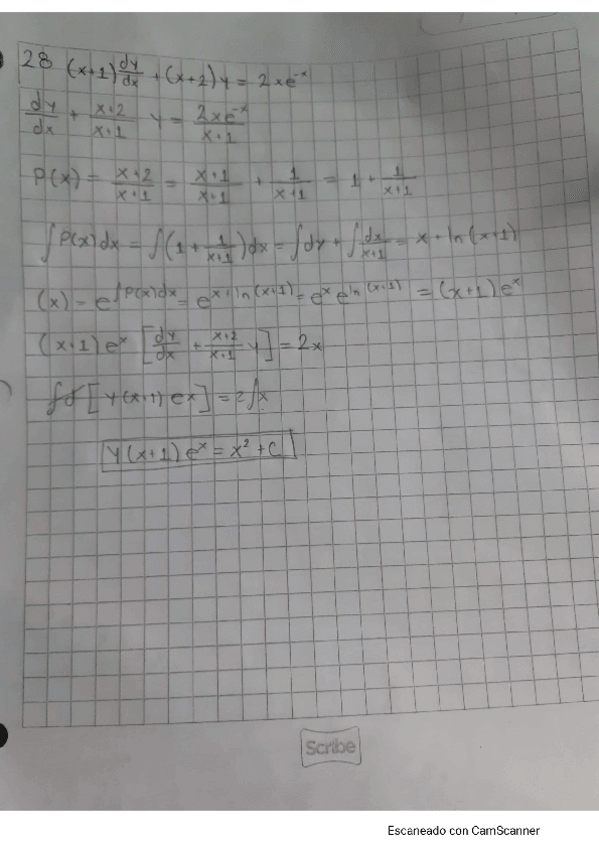 28 (x+1) dy/dx + (x+2) y = 2xe^-x
dy/dx + x+2/x+1 y = 2xe^-x/x+1
P(x) = x+2/x+1 = x+1/x+1 + 1/x+1 = 1 + 1/x+1
∫P(x)dx = ∫(1 + 1/x+1)dx = ∫dx + ∫dx/x+1 = x + ln(x+1)
(x) = e^∫P(x)dx = e^x+ln(x+1) = e^x e^ln(x+1) = (x+1)e^x
(x+1)e^x [dy/dx + x+2/x+1 y] = 2x
∫d[y(x+1)ex] = 2∫x
y(x+1)e^x = x^2 + C
Scribe
Escaneado con CamScanner